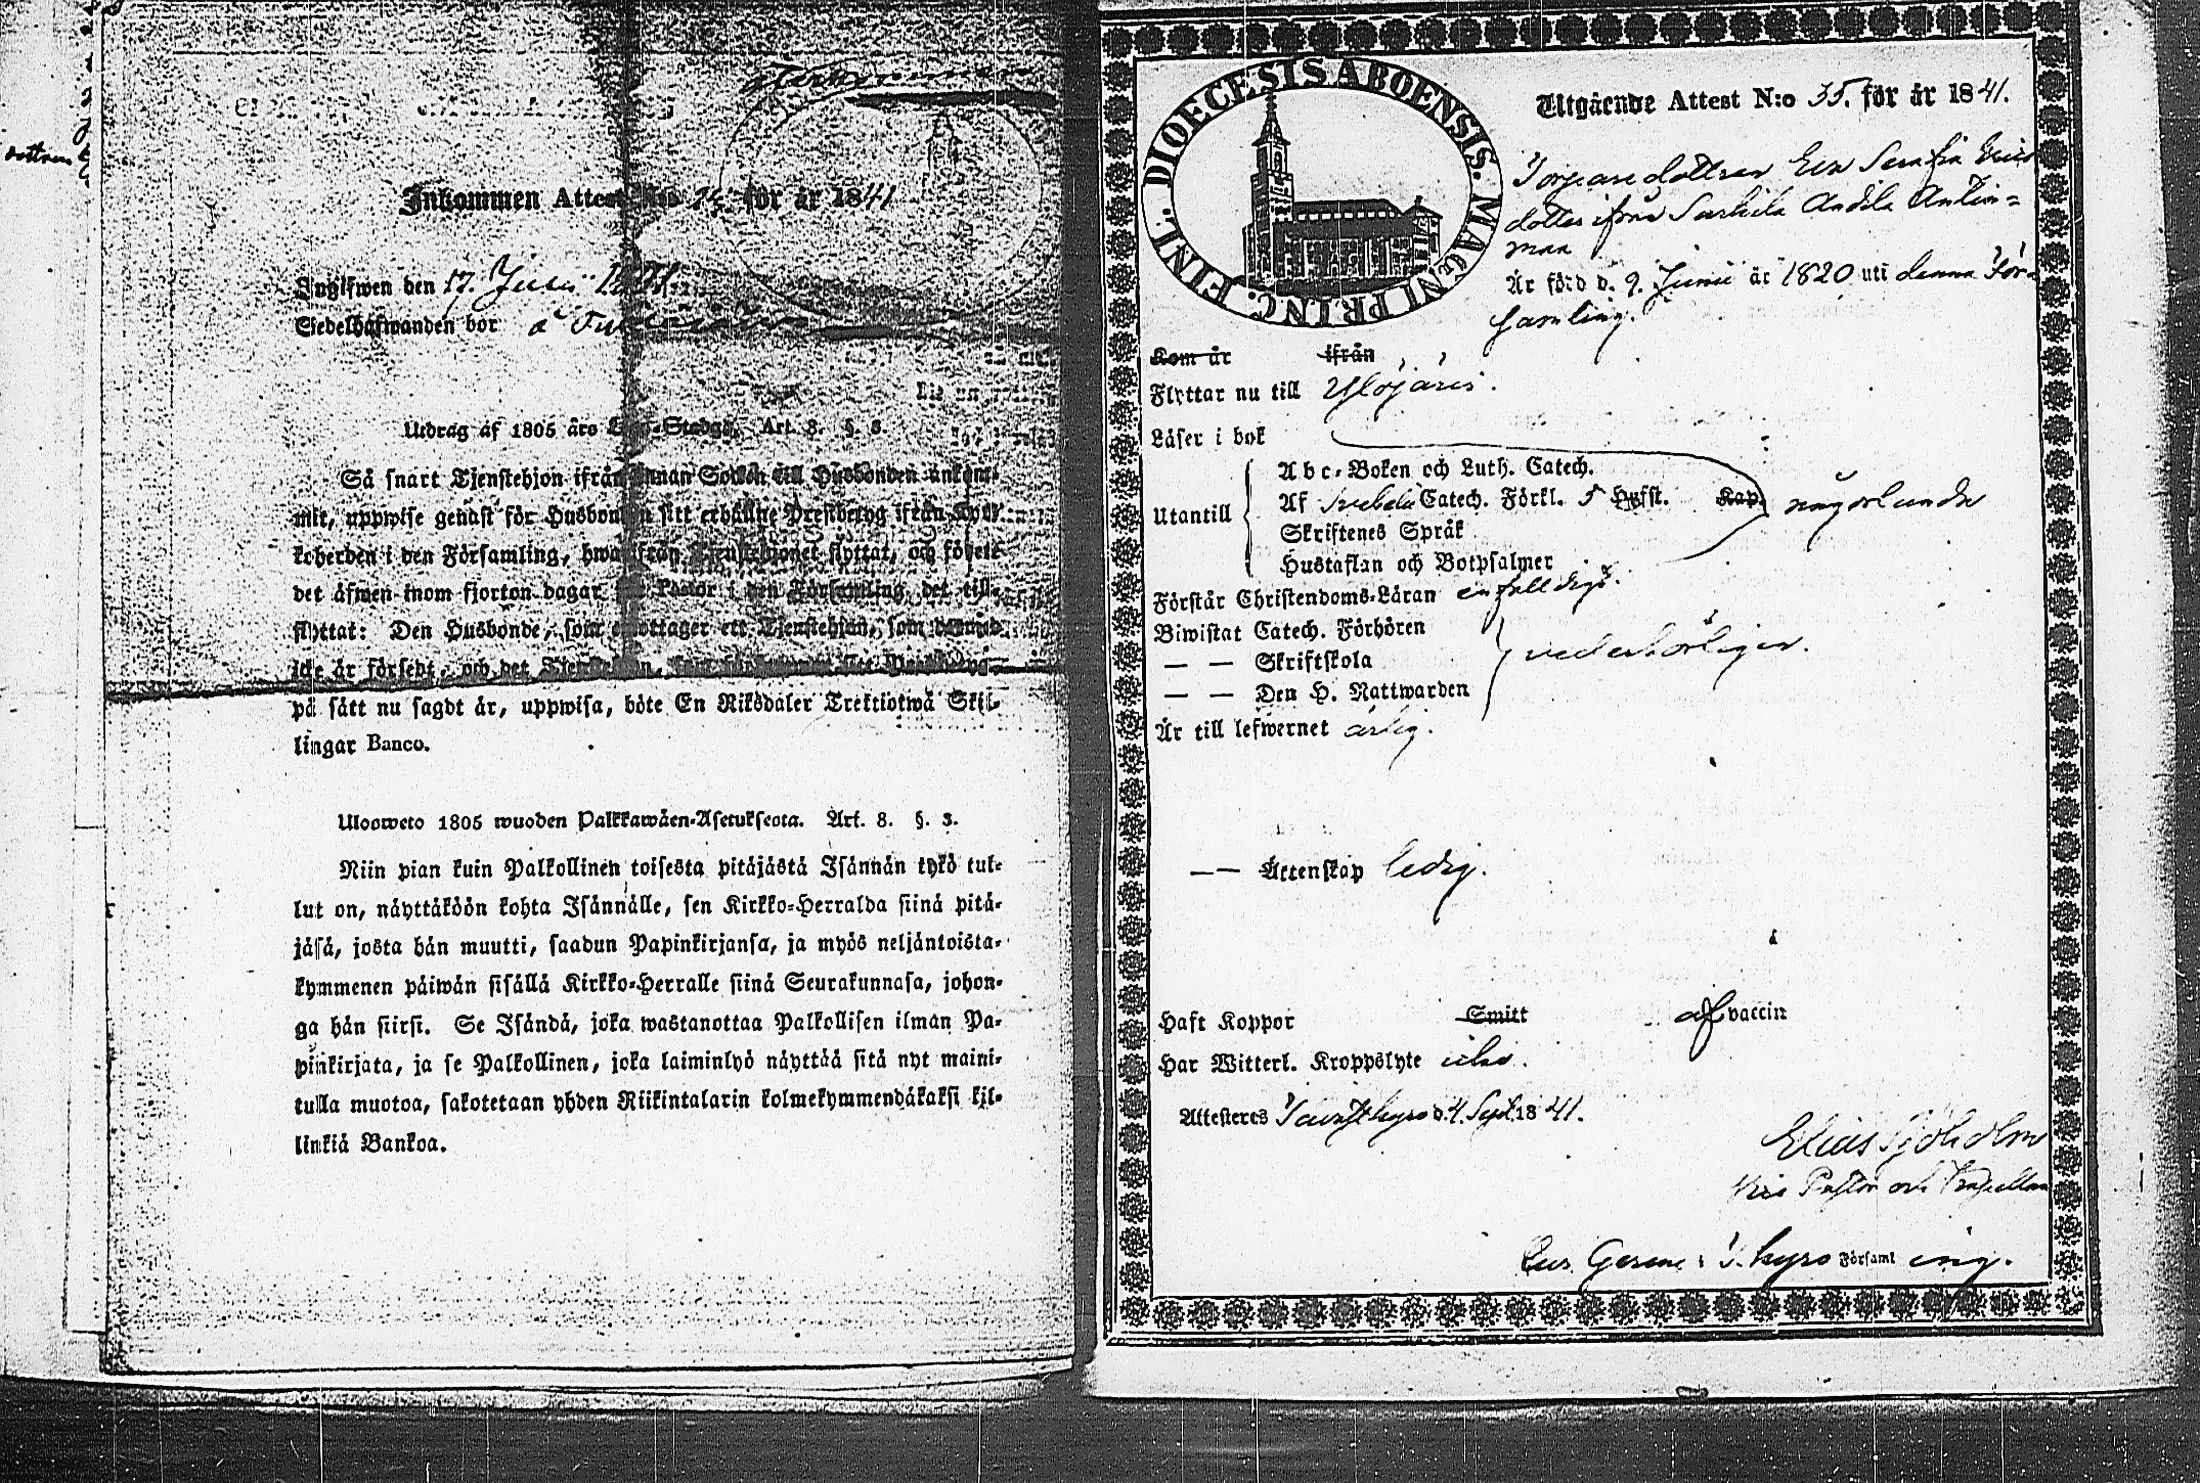 dottren
Inkommen Attest N:o för år 1841
Inglfwen den 17. Junii
Sedelhafwanden bor å
Utdrag af 1805 års Lego-Stadga, Art. 8. §. 3.
Så snart Tjenstehjon ifrån annan Socken till Husbonden ankom-
mit, uppwise genast för Husbonden sitt erhållne Prestbetyg ifrån Kyr-
koherden i den Församling, hwarifrån Tjenstehjonet flyttat, och förete
det äfwen inom fjorton dagar för Pastor i den Församling det till-
flyttat: Den Husbonde, som emottager ett Tjenstehjon, som dermed
icke är försedt, och det Tjenstehjon,
på sätt nu sagdt är, uppwisa, böte En Riksdaler Trettiotwå Skil-
lingar Banco.
Ulosweto 1805 wuoden Palkkawäen-Asetuksesta. Art. 8. §. 3.
Niin pian kuin Palkollinen toisesta pitäjästä Isännän tykö tul-
lut on, näyttäköön kohta Isännälle, sen Kirkko-Herralda siinä pitä-
jäsä, josta hän muutti, saadun Papinkirjansa, ja myös neljäntoista-
kymmenen päiwän sisällä Kirkko-Herralle siinä Seurakunnasa, johon-
ga hän siirsi. Se Isändä, joka wastanottaa Palkollisen ilman Pa-
pinkirjata, ja se Palkollinen, joka laiminlyö näyttää sitä nyt maini-
tulla muotoa, sakotetaan yhden Riikintalarin kolmekymmendäkaksi kil-
linkiä Bankoa.
FINL. DIOECESIS ABOENSIS. MAGNI PRINC.
Utgående Attest N:o 35. för år 1841.
Torpare dottren Eva Serafia Erics
dotter ifrån Sarkila Andela Anttin=
maa
Är född d. 9. Junii år 1820 uti denna För-
samling.
Kom år ifrån
Flyttar nu till Ylöjärvi.
Läser i bok
Utantill
Abc-Boken och Luth. Catech.
Af Svebelii Catech. Förkl. 5 Hufst. Kap.
Skriftenes Språk
Hustaflan och Botpsalmer
någorlunda
Förstår Christendoms-Läran enfalldigt.
Biwistat Catech. Förhören
— — Skriftskola
— — Den H. Nattwarden
vederbörligen.
Är till lefwernet ärlig.
— — Äktenskap ledig.
Haft Koppor Smitt af vaccin
Har Witterl. Kroppslyte icke.
Attesteres Tavastkyro d. 4. Sept. 1841.
Elias Sjöholm
Vice Pastor och Capellan
T. Kyro Församling.